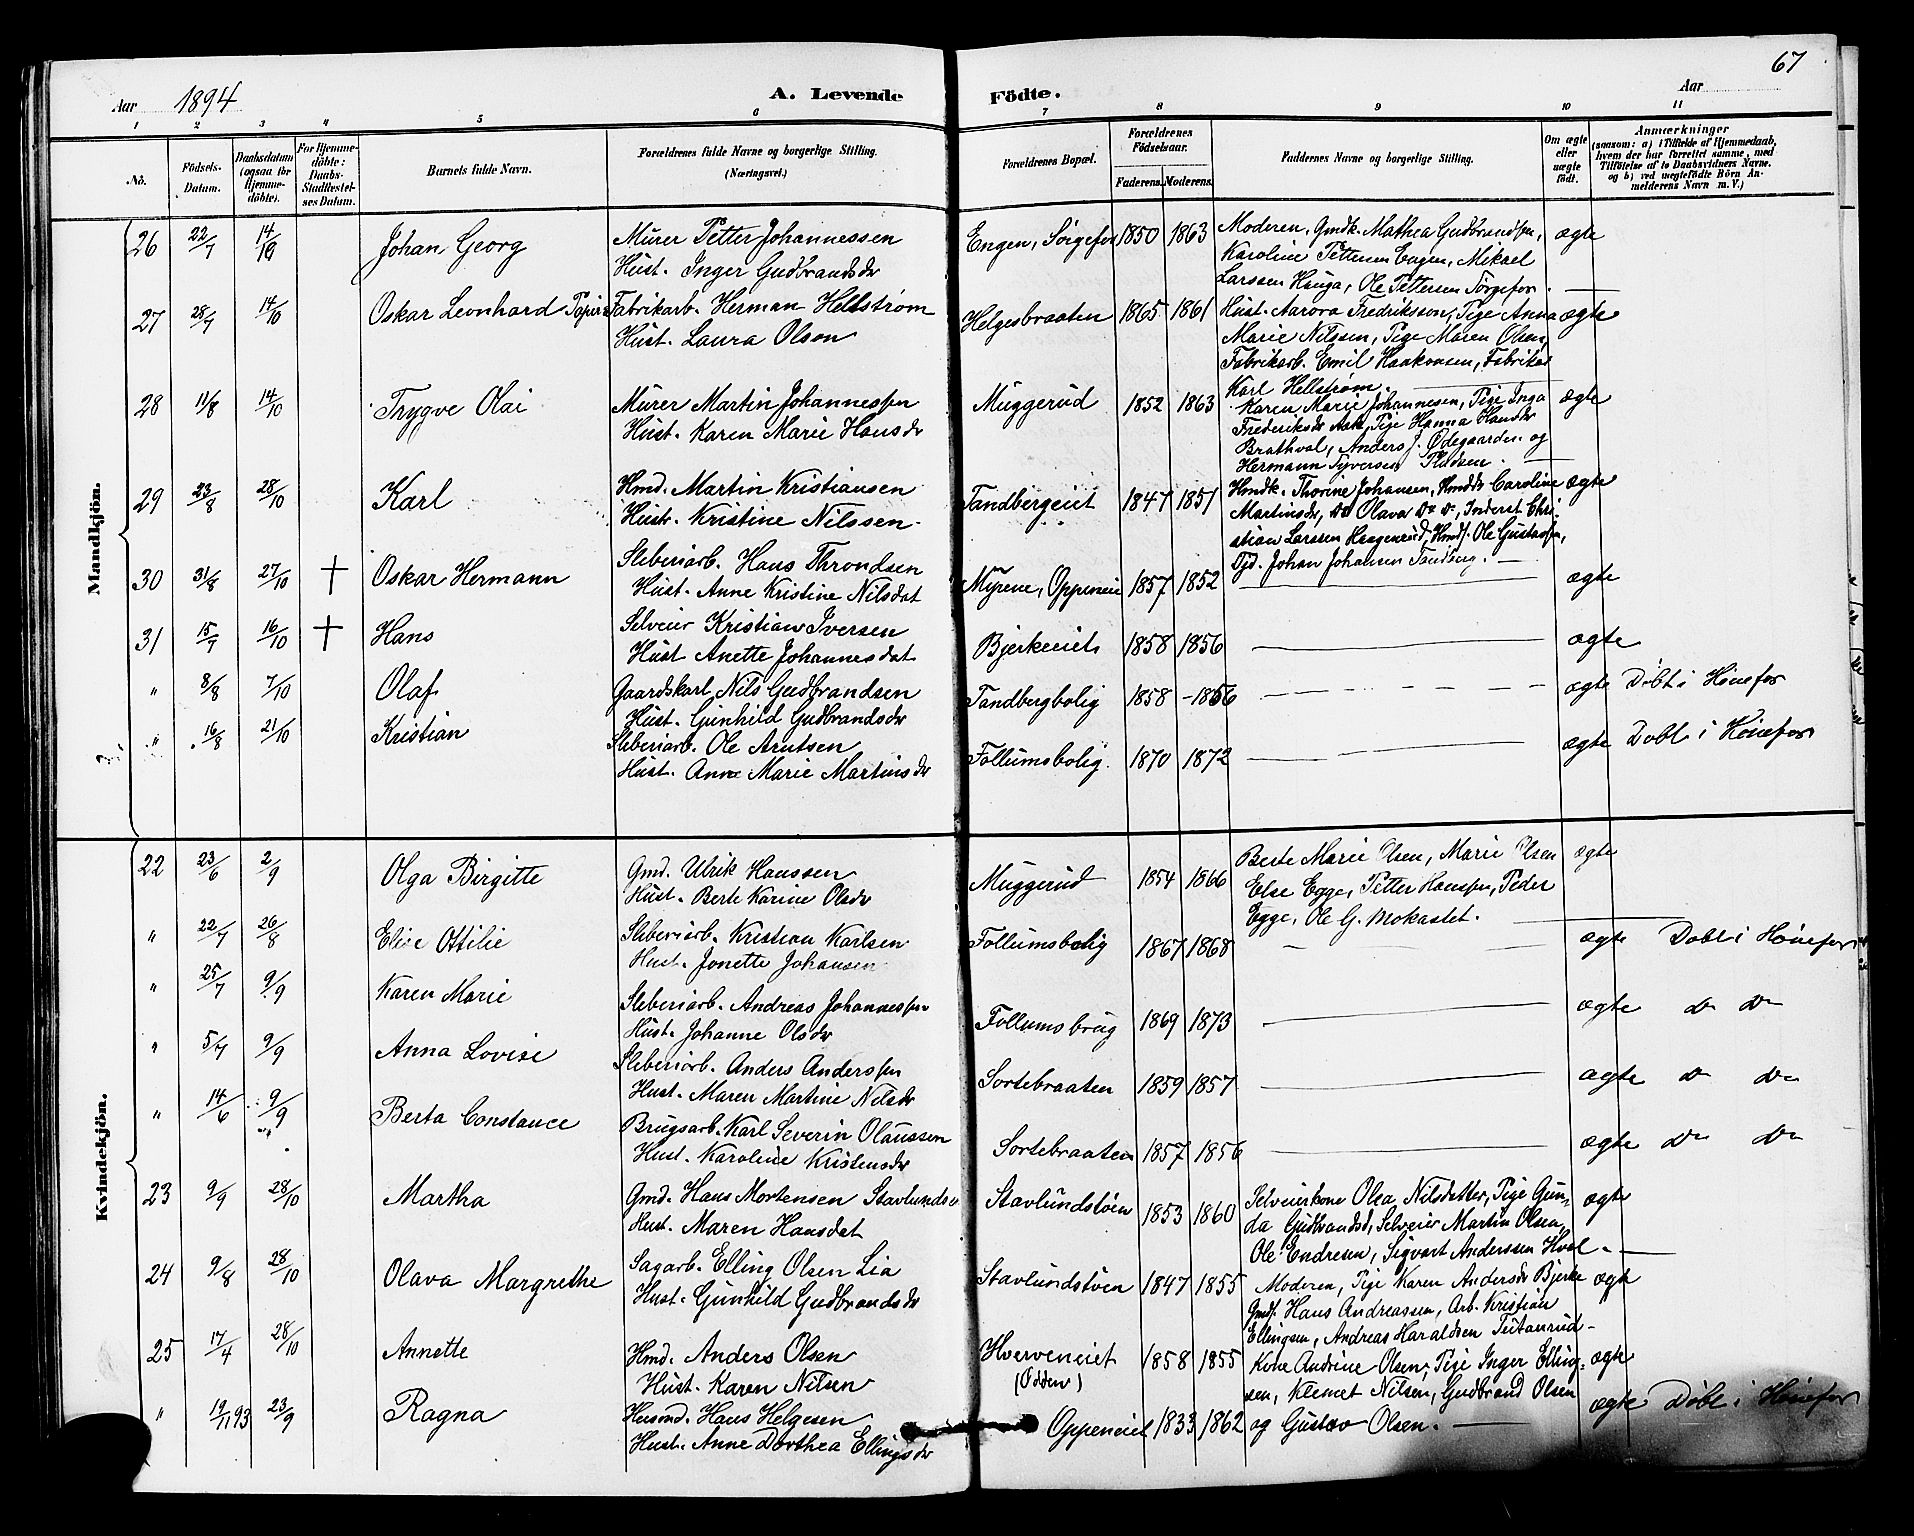 67
Aar 1894 A. Levende Födte. Aar
1 2 3 4 5 6 7 8 9 10 11
No. Födsels-Datum. Daabsdatum (ogsaa for Hjemme-döbte). For Hjemme-döbte: Daabs-Stadfæstel-ses Datum. Barnets fulde Navn. Forældrenes fulde Navne og borgerlige Stilling. (Næringsvei.) Forældrenes Bopæl. Forældrenes Födselsaar. Faderens. Moderens. Faddernes Navne og borgerlige Stilling. Om ægte eller uægte født. Anmærkninger (saasom: a) i Tilfælde af Hjemmedaab, hvem der har forrettet samme, med Tilföielse af to Daabsvidners Navne, og b) ved uegtefödte Börn An-melderens Navn m. V.)
Mandkjön.
26 22/7 14/10 Johan Georg Murer Petter Johannessen Engen, Sörgefos 1850 1863 Moderen, Gmdk. Mathea Gudbrandsen, ægte
Hust. Inger Gudbrandsdr Karoline Pettersen Engen, Mikael
Larssen Hauga, Ole Pettersen Sörgefos.
27 28/7 14/10 Oskar Leonhard Papir Fabrikarb. Herman Hellström Helgesbraaten 1865 1861 Hust. Aurora Fredriksson, Pige Anna ægte
Hust. Laura Olson Marie Nilssen, Pige Maren Olsen,
Fabrikarb. Emil Haakonsen, Fabrikar
Karl Hellström.
28 11/8 14/10 Trygve Olai Murer Martin Johannessen Muggerud 1852 1863 Karen Marie Johannesen, Pige Inga ægte
Hust. Karen Marie Hansdr Frederiksdr Ask, Pige Hanna Hansdr
Brathval, Anders J. Ødegaarden og
Hermann Syversen
29 23/8 28/10 Karl Hmd. Martin Kristiansen Tandbergeiet 1847 1851 Hmdk. Thorine Johansen, Hmddr Caroline ægte
Hustr. Kristine Nilssen Martinsdr, Do Olava Do Do, Inderst Chri-
stian Larssen Haagenrud, Hmdf. Ole Gustavsen,
Tjd. Johan Johansen Tandberg.
30 31/8 27/10 † Oskar Hermann Sleberiarb. Hans Throndsen Myrene, Oppeneie 1857 1852 ægte
Hust. Anne Kristine Nilsdat
31 15/7 16/10 † Hans Selveier Kristian Iversen Bjerkeeiet 1858 1856 ægte
Hust Anette Johannesdat
" 8/8 7/10 Olaf Gaardskarl Nils Gudbrandsen Tandbergbolig 1858 1856 ægte Döbt i Hönefos
Hust. Gunhild Gudbrandsdr
" 16/8 21/10 Kristian Sleberiarb. Ole Arntsen Follumsbolig 1870 1872 ægte Döbt i Hönefos
Hust. Anne Marie Martinsdr
Kvindekjön.
22 23/6 2/9 Olga Birgitte Gmd. Ulrik Hanssen Muggerud 1854 1866 Berte Marie Olsen, Marie Olsen ægte
Hust. Berte Karine Olsdr Else Egge, Petter Hansen, Peder
Egge, Ole G. Mokastet.
" 22/7 26/8 Elise Ottilie Sleberiarb. Kristian Karlsen Follumsbolig 1867 1868 ægte Döbt i Hönefos
Hust. Jonette Johansen
" 25/7 9/9 Karen Marie Sleberiarb. Andreas Johannessen Follumsbrug 1869 1873 ægte Do Do
Hust. Johanne Olsdr
" 5/7 9/9 Anna Lovise Sleberiarb. Anders Anderssen Sortebraaten 1859 1857 ægte Do Do
Hust. Maren Martine Nilsdr
" 14/6 9/9 Berta Constance Brugsarb. Karl Severin Olaussen Sortebraaten 1857 1856 ægte Do Do
Hust. Karoline Kristensdr
23 9/9 28/10 Martha Gmd. Hans Mortensen Stavlundstöen 1853 1860 Selveierkone Olea Nilsdatter, Pige Gun- ægte
Hust. Maren Hansdat da Gudbrandsd, Selveier Martin Olsen,
Ole Endresen, Sigvart Anderssen Hval.
24 9/8 28/10 Olava Margrethe Sagarb. Elling Olsen Lia Stavlundstöen 1847 1855 Moderen, Pige Karen Andersdr Bjerke ægte
Hust. Gunhild Gudbrandsdr Gmdf. Hans Andreassen, Arb. Kristian
Ellingsen, Andreas Haraldsen Teitanrud
25 17/4 28/10 Annette Hmd. Anders Olsen Hverveneiet 1858 1855 Kone Andrine Olsen, Pige Inger Elling- ægte
Hust. Karen Nilsen (Odden) sen, Klemet Nilsen, Gudbrand Olsen
" 19/11 93 23/9 Ragna Husmd. Hans Helgesen Oppeneiet 1833 1862 og Gustav Olsen. ægte Döbt i Hönefos
Hust. Anne Dorthea Ellingsdr